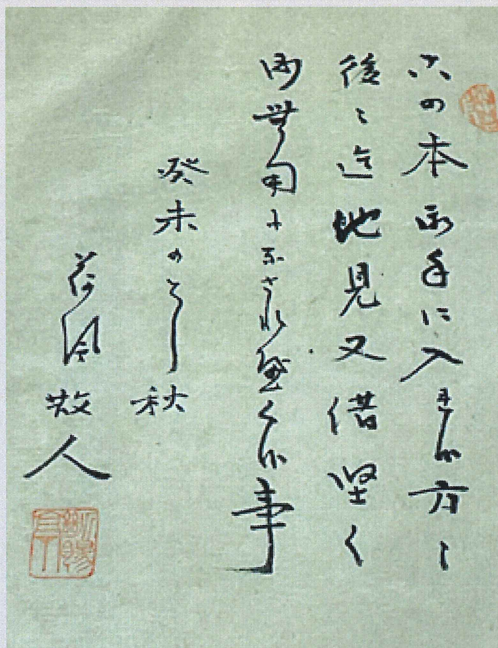 この本御手に入り候方々
後々迄他見又借堅く
御無用になされ度く候事
癸未のとし秋
荷風散人